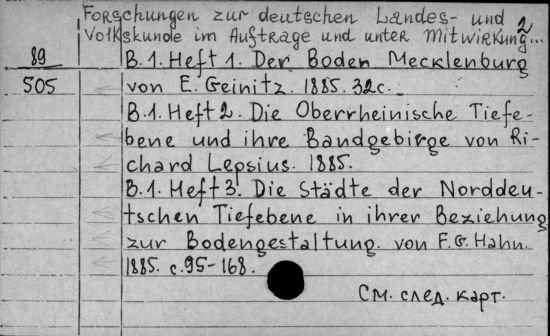 Forschungen zur deutschen Landes- und 2
Volkskunde im Auftrage und unter Mitwirkung...
89
B.1. Heft 1. Der Boden Mecklenburg
505
von E. Geinitz. 1885. 32c.
B.1. Heft 2. Die Oberrheinische Tiefe-
bene und ihre Bandgebirge von Ri-
chard Lepsius. 1885.
B.1. Heft 3. Die Städte der Norddeu-
tschen Tiefebene in ihrer Beziehung
zur Bodengestaltung. von F.G. Hahn.
1885. c.95-168.
См. след. карт.